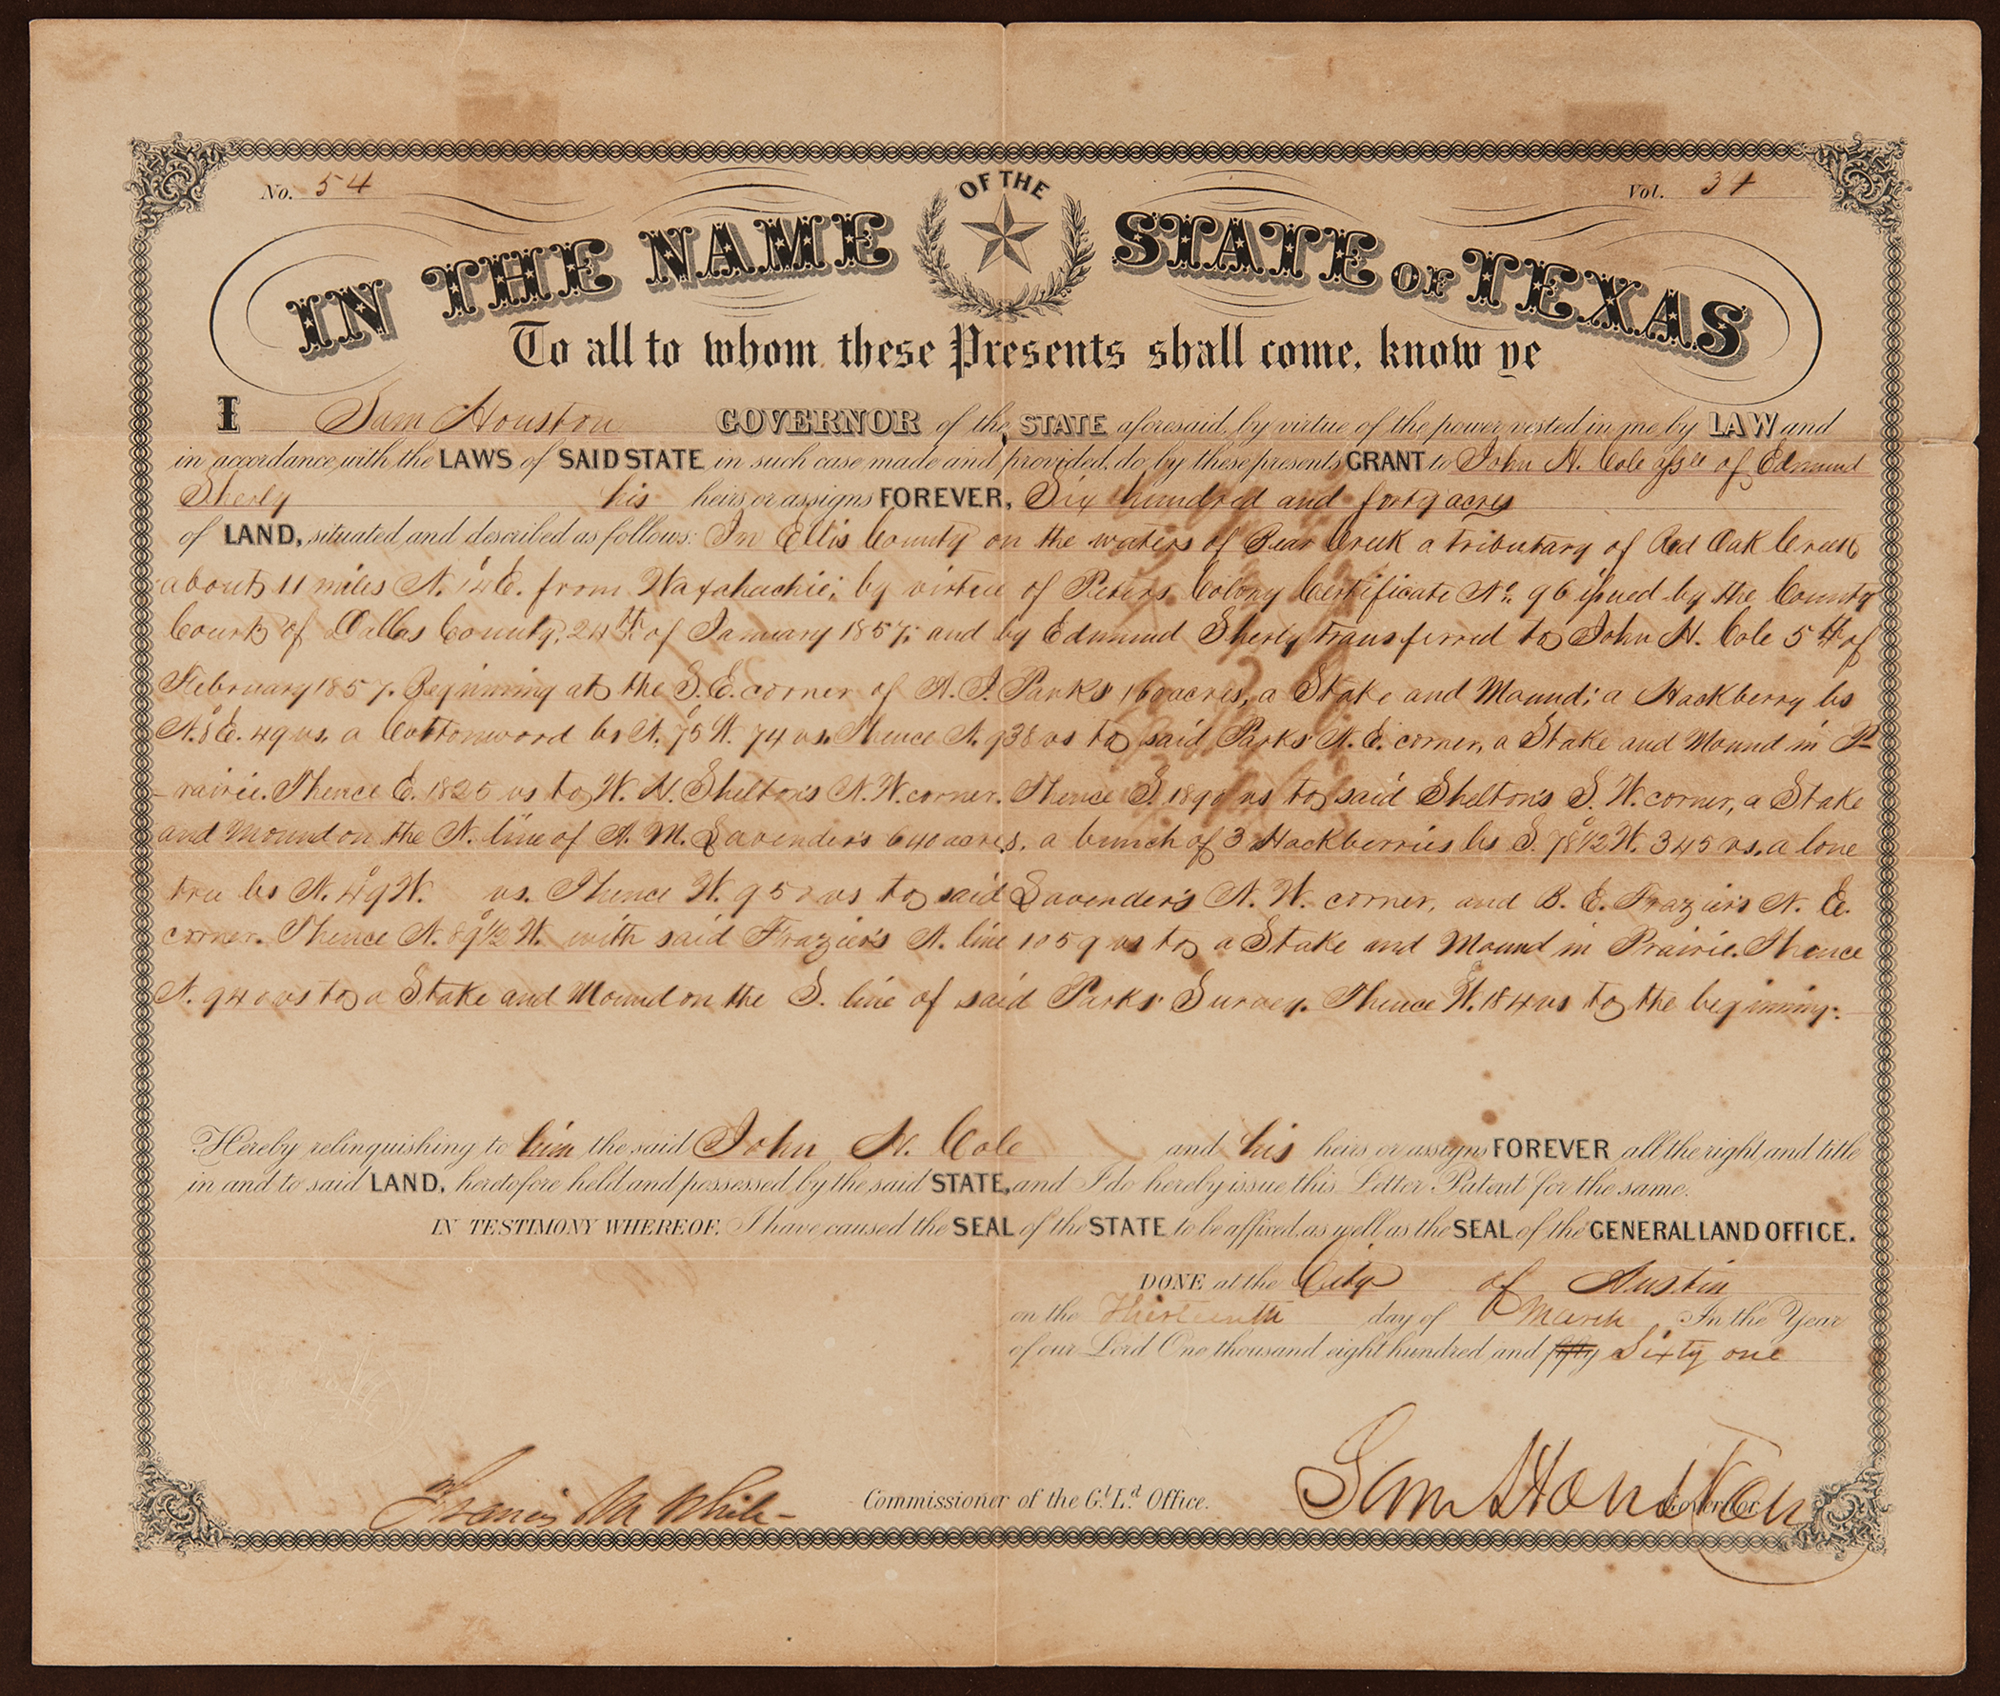 No. 54
Vol. 34
IN THE NAME OF THE STATE OF TEXAS
To all to whom these Presents shall come, know ye
I Sam Houston GOVERNOR of the STATE aforesaid, by virtue of the power vested in me by LAW and
in accordance with the LAWS of SAID STATE in such case made and provided, do by these presents GRANT to John N. Cole assee of Edmund
Sherly his heirs or assigns FOREVER, Six hundred and forty acres
of LAND, situated and described as follows: In Ellis County on the waters of Bear Creek a tributary of Red Oak Creek
about 11 miles N. 14° E. from Waxahachie; by virtue of Peters Colony Certificate No. 96 issued by the County
Court of Dallas County, 24th of January 1857; and by Edmund Sherly transferred to John N. Cole 5th of
February 1857. Beginning at the S. E. corner of A. J. Parks' 160 acres, a Stake and Mound; a Hackberry bs
N. 8° E. 49 vs. a Cottonwood bs N. 75° W. 74 vs. Thence N. 938 vs to said Parks' N. E. corner, a Stake and Mound in P-
-rairie. Thence E. 1825 vs to W. N. Shelton's N. W. corner. Thence S. 1890 vs to said Shelton's S. W. corner, a Stake
and Mound on the N. line of A. M. Lavender's 640 acres, a bunch of 3 Hackberries bs S. 78 1/2° W. 345 vs. a lone
tree bs N. 49° W. vs. Thence W. 950 vs to said Lavender's N. W. corner, and B. E. Frazier's N. E.
corner. Thence N. 89 1/2° W. with said Frazier's N. line 1059 vs to a Stake and Mound in Prairie. Thence
N. 940 vs to a Stake and Mound on the S. line of said Parks' Survey. Thence W. 184 vs to the beginning.
Hereby relinquishing to him the said John N. Cole and his heirs or assigns FOREVER all the right and title
in and to said LAND, heretofore held and possessed by the said STATE, and I do hereby issue this Letter Patent for the same.
IN TESTIMONY WHEREOF, I have caused the SEAL of the STATE to be affixed, as well as the SEAL of the GENERAL LAND OFFICE.
DONE at the City of Austin
on the Thirteenth day of March In the Year
of our Lord One thousand eight hundred and fifty Sixty one
Francis M White Commissioner of the G.l L.d Office. Sam Houston Governor